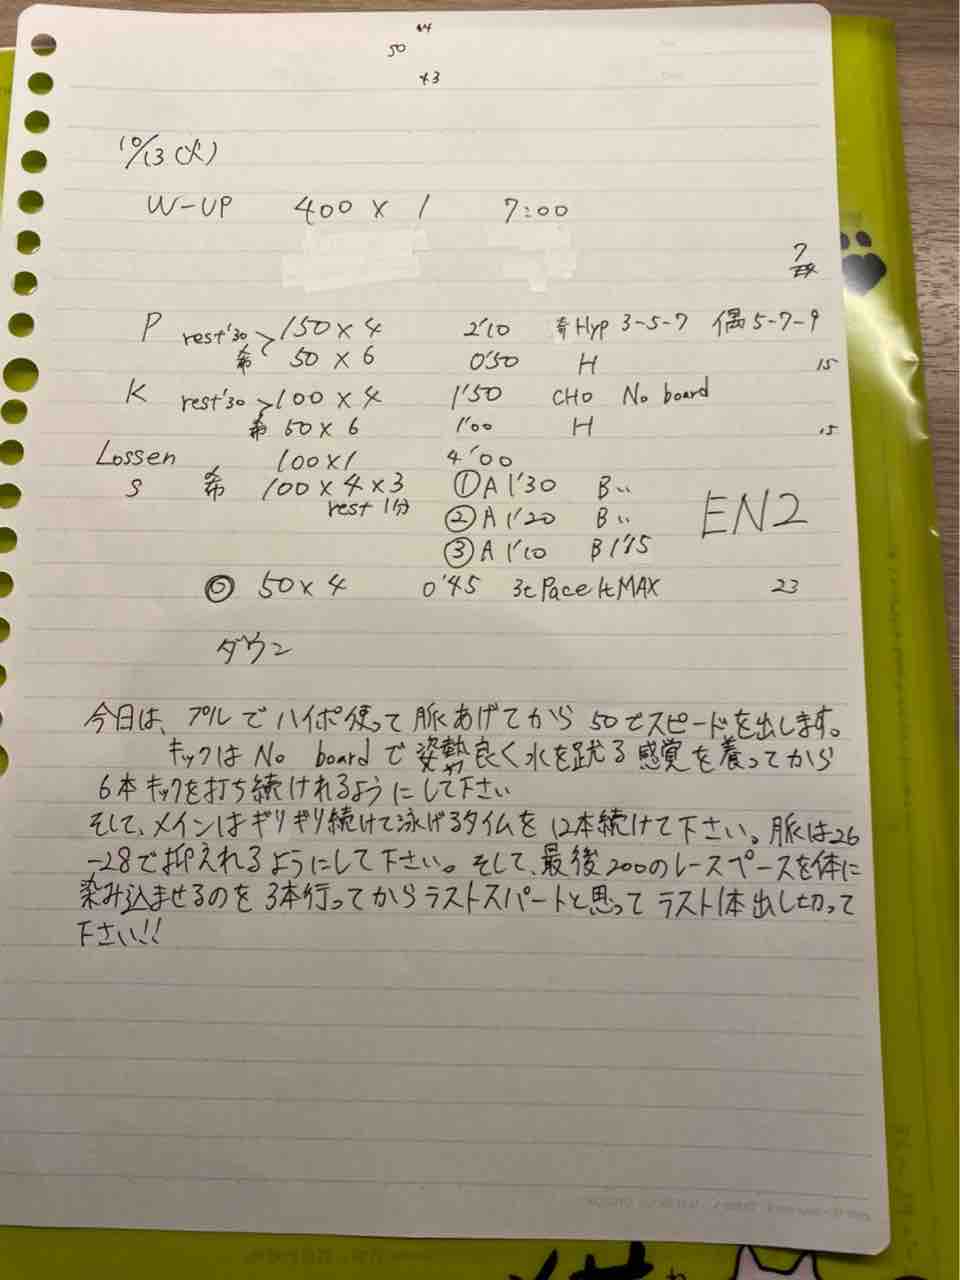 ×4
50
×3
10/13(火)
W-UP 400 × 1 7:00
7
P rest'30 > 150 × 4 2'10 奇Hyp 3-5-7 偶5-7-9
希 50 × 6 0'50 H 15
K rest'30 > 100 × 4 1'50 CHO No board
希 50 × 6 1'00 H 15
Lossen 100×1 4'00
S 希 100 × 4 × 3 ①A 1'30 B〃
rest 1分 ②A 1'20 B〃 EN2
③A 1'10 B 1'15
◎ 50 × 4 0'45 3t Pace 1t MAX 23
ダウン
今日は、プルでハイポ使って脈あげてから50でスピードを出します。
キックはNo boardで姿勢良く水を蹴る感覚を養ってから
6本キックを打ち続けれるようにして下さい
そして、メインはギリギリ続けて泳げるタイムを12本続けて下さい。脈は26
-28で抑えれるようにして下さい。そして、最後200のレースペースを体に
染み込ませるのを3本行ってからラストスパートと思ってラスト1本出し切って
下さい!!